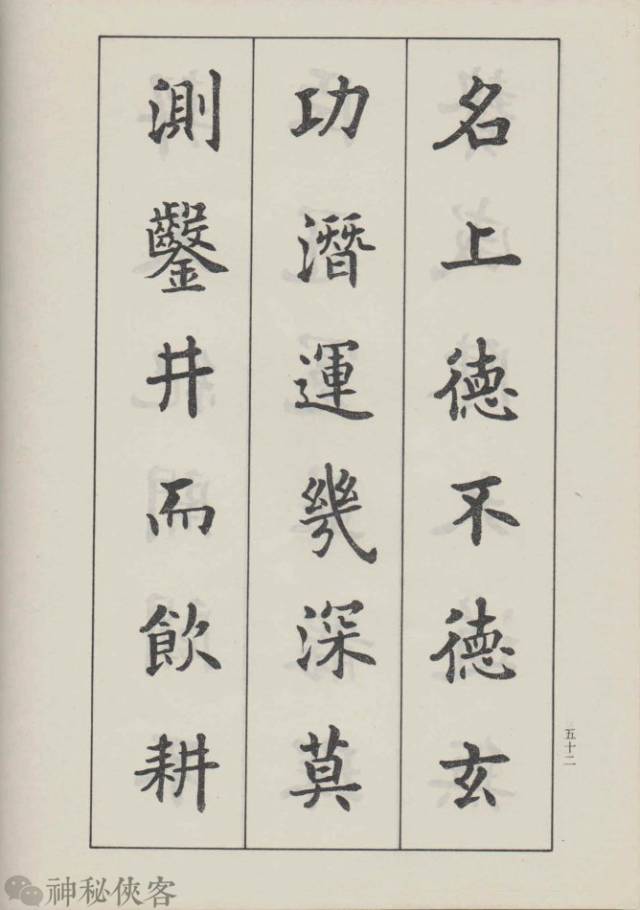 名上德不德玄
功潛運幾深莫
測鑿井而飲耕
五十二
神秘俠客